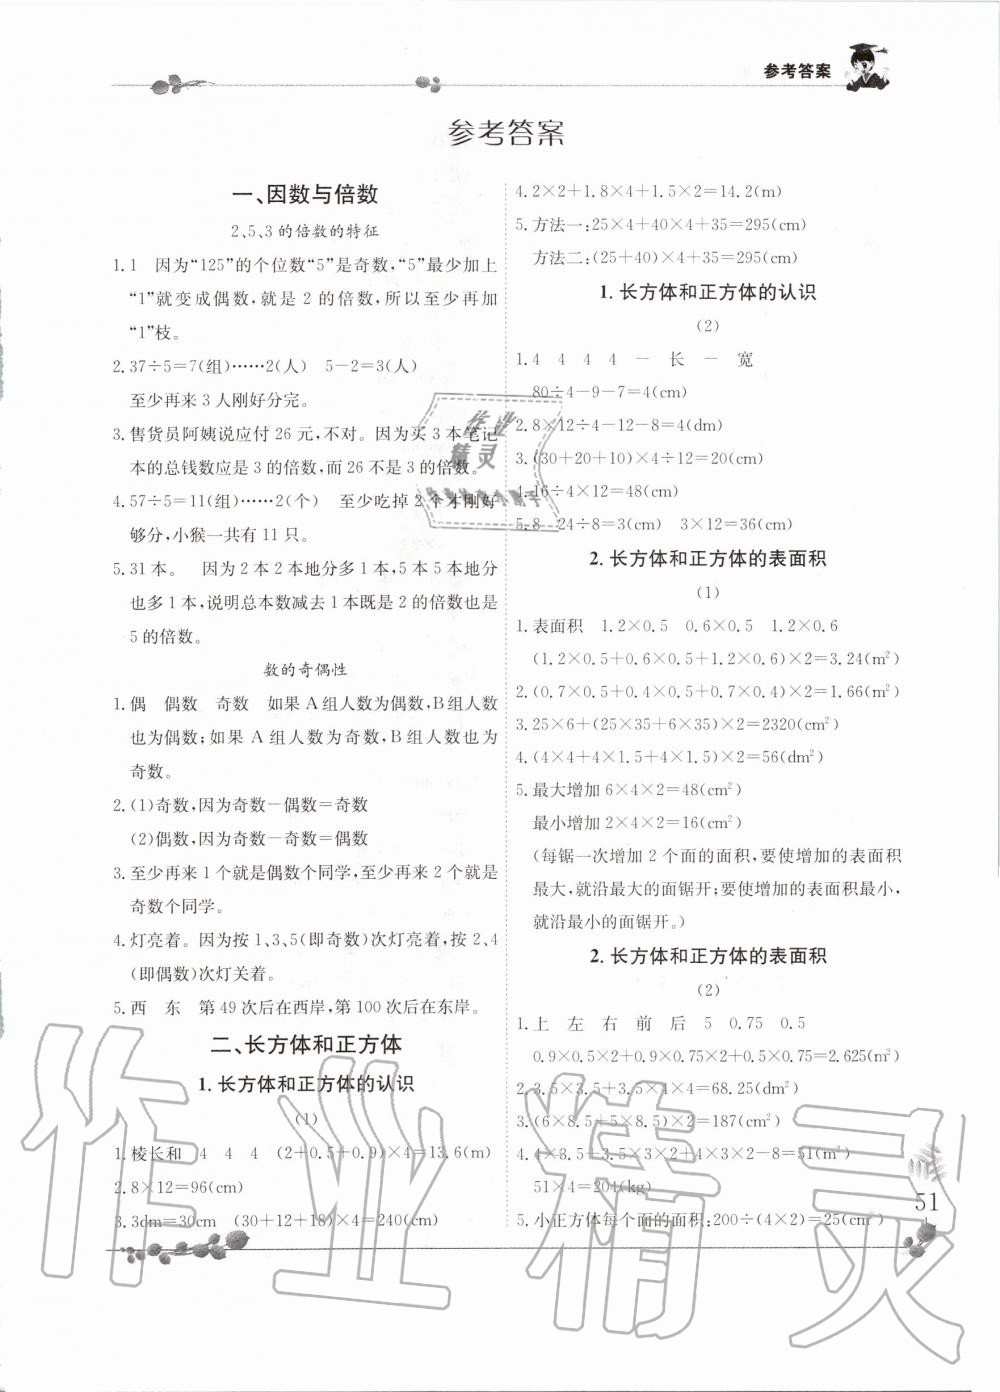 参考答案
参考答案
一、因数与倍数
2、5、3的倍数的特征
1.1 因为“125”的个位数“5”是奇数，“5”最少加上
“1”就变成偶数，就是2的倍数，所以至少再加
“1”枝。
2.37÷5=7(组)……2(人) 5-2=3(人)
至少再来3人刚好分完。
3.售货员阿姨说应付26元，不对。因为买3本笔记
本的总钱数应是3的倍数，而26不是3的倍数。
4.57÷5=11(组)……2(个) 至少吃掉2个才刚好
够分，小猴一共有11只。
5.31本。 因为2本2本地分多1本，5本5本地分
也多1本，说明总本数减去1本既是2的倍数也是
5的倍数。
数的奇偶性
1.偶 偶数 奇数 如果A组人数为偶数，B组人数
也为偶数；如果A组人数为奇数，B组人数也为
奇数。
2.(1)奇数，因为奇数-偶数=奇数
(2)偶数，因为奇数-奇数=偶数
3.至少再来1个就是偶数个同学，至少再来2个就是
奇数个同学。
4.灯亮着。因为按1、3、5(即奇数)次灯亮着，按2、4
(即偶数)次灯关着。
5.西 东 第49次后在西岸，第100次后在东岸。
二、长方体和正方体
1.长方体和正方体的认识
(1)
1.棱长和 4 4 4 (2+0.5+0.9)×4=13.6(m)
2.8×12=96(cm)
3.3dm=30cm (30+12+18)×4=240(cm)
4.2×2+1.8×4+1.5×2=14.2(m)
5.方法一：25×4+40×4+35=295(cm)
方法二：(25+40)×4+35=295(cm)
1.长方体和正方体的认识
(2)
1.4 4 4 4 一 长 一 宽
80÷4-9-7=4(cm)
2.8×12÷4-12-8=4(dm)
3.(30+20+10)×4=240(cm)
4.16÷4×12=48(cm)
5.8 24÷8=3(cm) 3×12=36(cm)
2.长方体和正方体的表面积
(1)
1.表面积 1.2×0.5 0.6×0.5 1.2×0.6
(1.2×0.5+0.6×0.5+1.2×0.6)×2=3.24(m²)
2.(0.7×0.5+0.4×0.5+0.7×0.4)×2=1.66(m²)
3.25×6+(25×35+6×35)×2=2320(cm²)
4.(4×4+4×1.5+4×1.5)×2=56(dm²)
5.最大增加6×4×2=48(cm²)
最小增加2×4×2=16(cm²)
(每锯一次增加2个面的面积，要使增加的表面积
最大，就沿最大的面锯开；要使增加的表面积最小，
就沿最小的面锯开。)
2.长方体和正方体的表面积
(2)
1.上 左 右 前 后 5 0.75 0.5
0.9×0.5×2+0.5×0.75×2+0.9×0.75×2=2.625(m²)
2.3.5×3.5+3.5×4×4=68.25(dm²)
3.(6×8.5+5×8.5)×2=187(cm²)
4.4×3.5+3.5×3×2+4×3×2-8=51(m²)
51×4=204(kg)
5.小正方体每个面的面积：200÷(4×2)=25(cm²)
51
作业
精灵
作业精灵